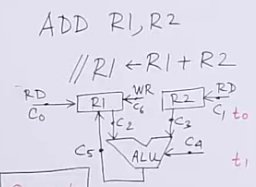 ADD R1, R2
//R1 ← R1 + R2
RD C0 R1 WR C6 R2 RD C1 t0
C2 C3
C5 ALU C4 t1